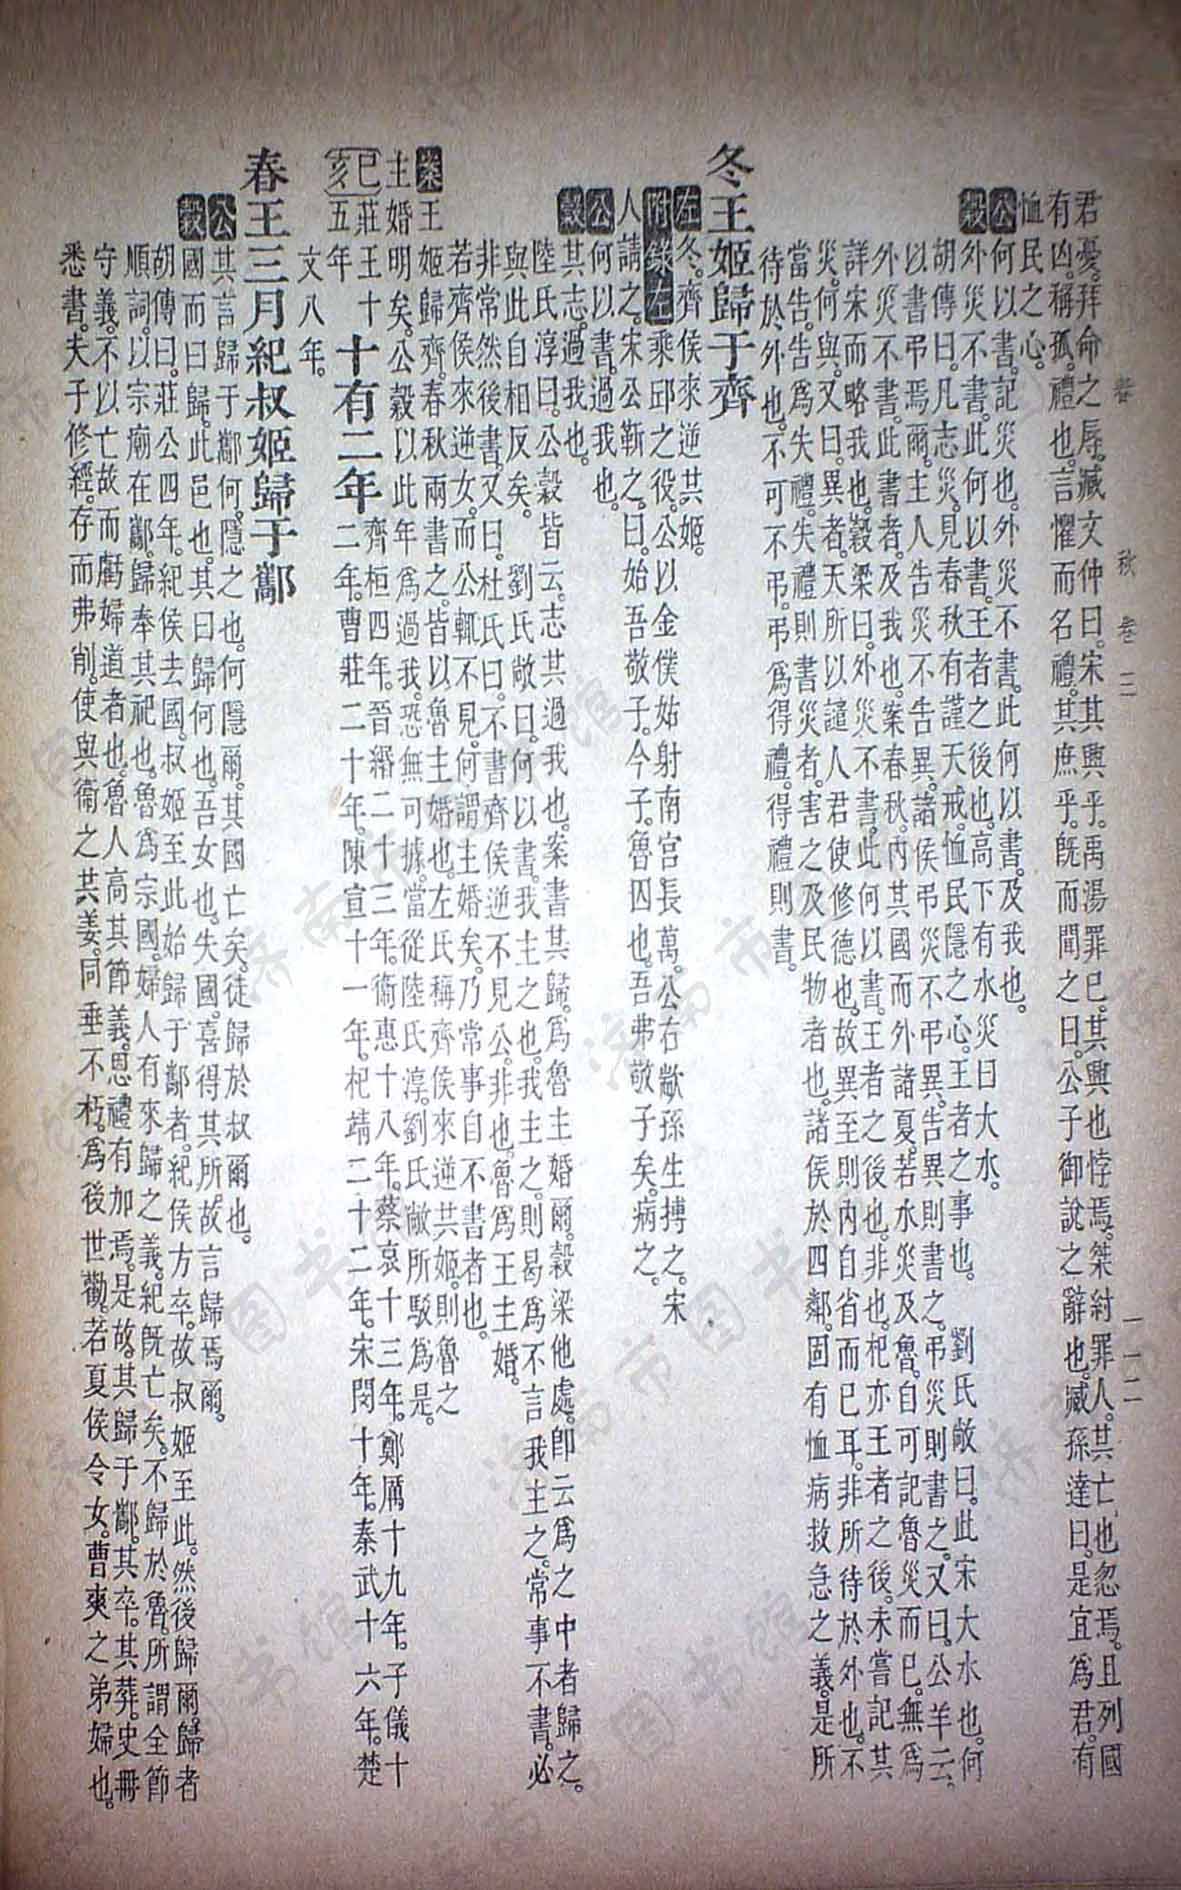 春秋 卷三 一一二
君憂。拜命之辱。臧文仲曰。宋其興乎。禹湯罪已。其興也悖焉。桀紂罪人。其亡也忽焉。且列國
有凶。稱孤。禮也。言懼而名禮。其庶乎。旣而聞之曰。公子御說之辭也。臧孫達曰。是宜爲君。有
恤民之心。
公 何以書。記災也。外災不書。此何以書。及我也。
穀 外災不書。此何以書。王者之後也。高下有水災曰大水。
胡傳曰。凡志災。見春秋有謹天戒。恤民隱之心。王者之事也。 劉氏敞曰。此宋大水也。何
以書。弔焉爾。主人告災不告異。諸侯弔災不弔異。告異則書之。弔災則書之。又曰。公羊云。
外災不書。此書者。及我也。案春秋。內其國而外諸夏。若水災及魯。自可記魯災而已。無爲
詳宋而略我也。穀梁曰。外災不書。此何以書。王者之後也。非也。杞亦王者之後。未嘗記其
災。何與。又曰。異者。天所以譴人君使修德也。故異至則內自省而已耳。非所待於外也。不
當告。告爲失禮。失禮則書災者。害之及民物者也。諸侯於四鄰。固有恤病救急之義。是所
待於外也。不可不弔。弔爲得禮。得禮則書。
冬王姬歸于齊
左 冬。齊侯來逆共姬。
附錄左 乘邱之役。公以金僕姑射南宮長萬。公右歂孫生搏之。宋
人請之。宋公靳之。曰。始吾敬子。今子。魯囚也。吾弗敬子矣。病之。
公 何以書。過我也。
穀 其志。過我也。
陸氏淳曰。公穀皆云。志其過我也。案書其歸。爲魯主婚爾。穀梁他處。卽云爲之中者歸之。
與此自相反矣。 劉氏敞曰。何以書。我主之也。我主之。則曷爲不言我主之。常事不書。必
非常然後書。又曰。杜氏曰。不書齊侯逆。不見公。非也。魯爲王主婚。
若齊侯來逆女。而公輒不見。何謂主婚矣。乃常事自不書者也。
案 王姬歸齊。春秋兩書之。皆以魯主婚也。左氏稱齊侯來逆共姬。則魯之
主婚明矣。公穀以此年爲過我。恐無可據。當從陸氏淳。劉氏敞所駁爲是。
己亥 莊王十五年 十有二年 齊桓四年。晉緡二十三年。衞惠十八年。蔡哀十三年。鄭厲十九年。子儀十
二年。曹莊二十年。陳宣十一年。杞靖二十二年。宋閔十年。秦武十六年。楚
文八年。
春王三月紀叔姬歸于酅
公 其言歸于酅何。隱之也。何隱爾。其國亡矣。徒歸於叔爾也。
穀 國而曰歸。此邑也。其曰歸何也。吾女也。失國。喜得其所。故言歸焉爾。
胡傳曰。莊公四年。紀侯去國。叔姬至此始歸于酅者。紀侯方卒。故叔姬至此。然後歸爾。歸者
順詞。以宗廟在酅。歸奉其祀也。魯爲宗國。婦人有來歸之義。紀旣亡矣。不歸於魯。所謂全節
守義。不以亡故而虧婦道者也。魯人高其節義。恩禮有加焉。是故其歸于酅。其卒。其葬。史冊
悉書。夫子修經。存而弗削。使與衞之共姜。同垂不朽。爲後世勸。若夏侯令女。曹爽之弟婦也。